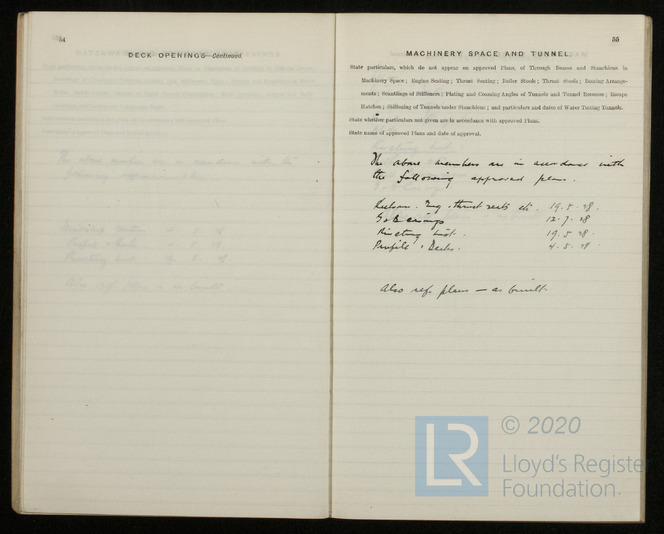 54
DECK OPENINGS—Continued.
55
MACHINERY SPACE AND TUNNEL.
State particulars, which do not appear on approved Plans, of Through Beams and Stanchions in
Machinery Space; Engine Seating; Thrust Seating; Boiler Stools; Thrust Stools; Boxing Arrange-
ments; Scantlings of Stiffeners; Plating and Coaming Angles of Tunnels and Tunnel Recesses; Escape
Hatches; Stiffening of Tunnels under Stanchions; and particulars and dates of Water Testing Tunnels.
State whether particulars not given are in accordance with approved Plans.
State name of approved Plans and date of approval.
The above members are in accordance with
the following approved plans.
Eng. thrust seats etc. 19.5.28.
G & B casings 12.7.28
Riveting list. 19.5.28.
Profile & Decks. 4.5.28.
Also ref. plans — as built.
LR
© 2020
Lloyd's Register
Foundation.